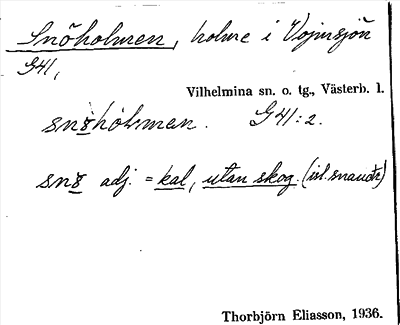 Snöholmen, holme i Vojmsjön
G41,
Vilhelmina sn. o. tg., Västerb. l.
snöhólmen. G41:2.
adj. = kal, utan skog. (isl. snauðr)
Thorbjörn Eliasson, 1936.